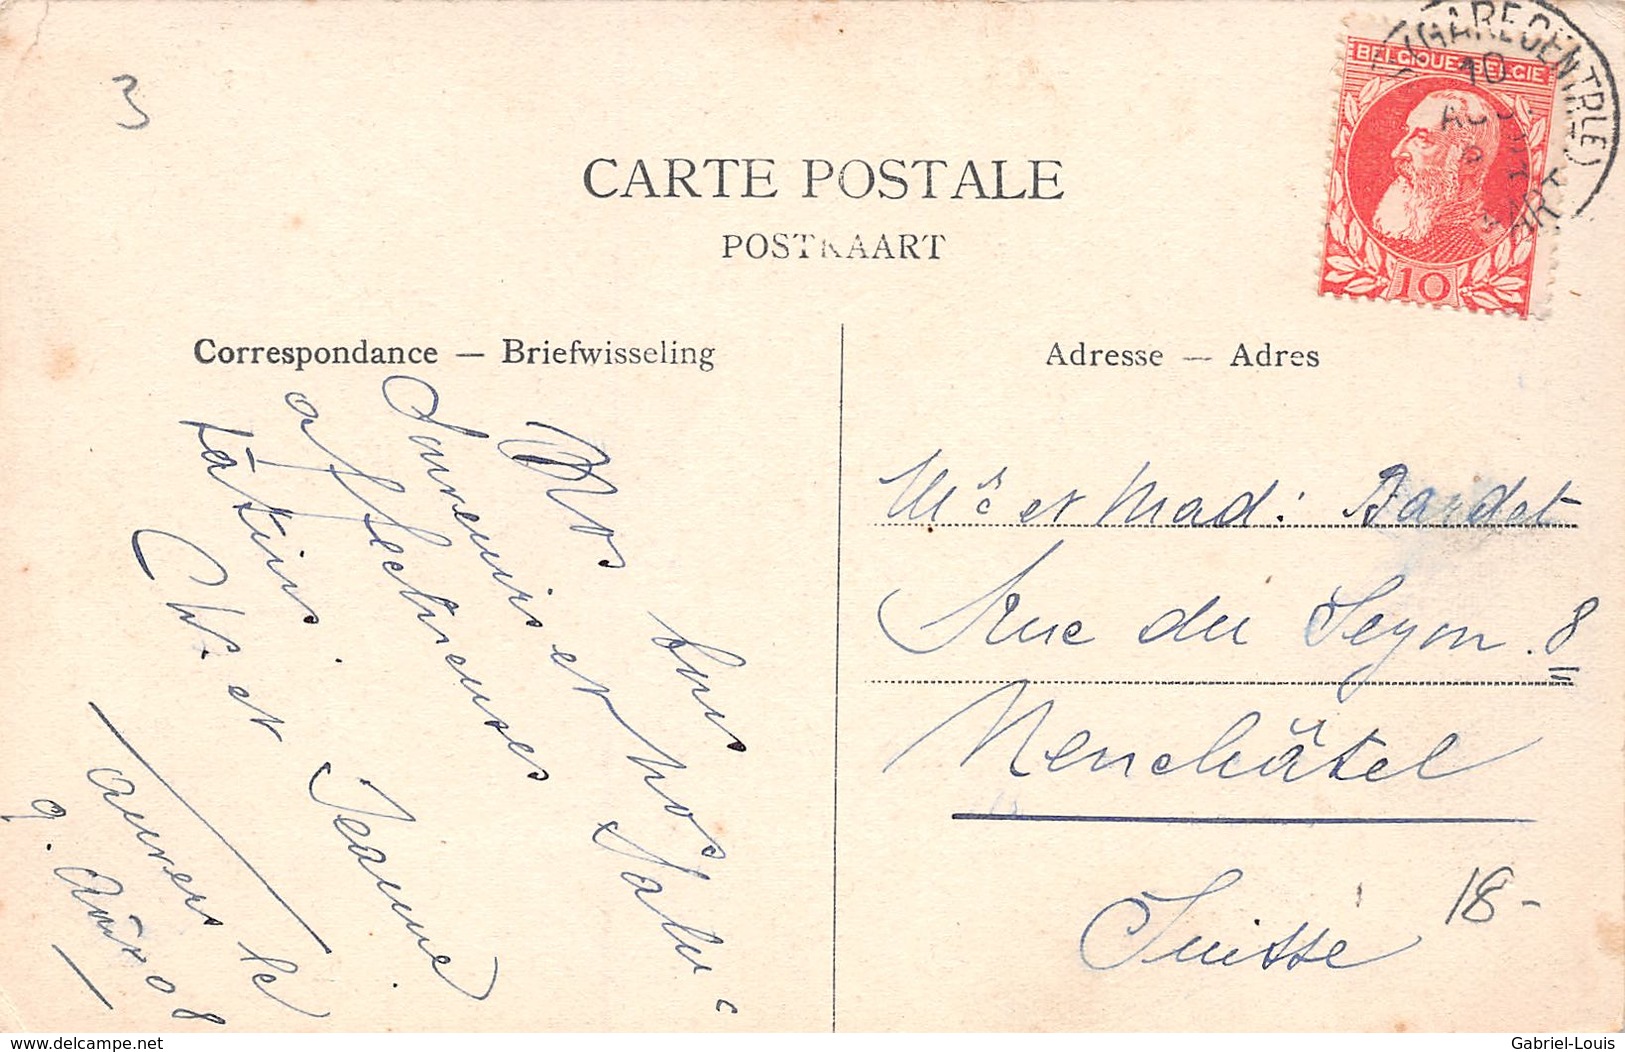 3
CARTE POSTALE
POSTKAART
BELGIQUE BELGIE
10
(GARE CENTRALE)
10
AOUT
Correspondance — Briefwisseling
Adresse — Adres
Nos bons
Souvenirs et nos Salu
affectueuses
tations.
Chs. et Jeanne
Anvers le
9. Août 08
Mr et Mad: Bardet
Rue du Seyon. 8
Neuchâtel
Suisse
18-
delcampe.net
Gabriel-Louis